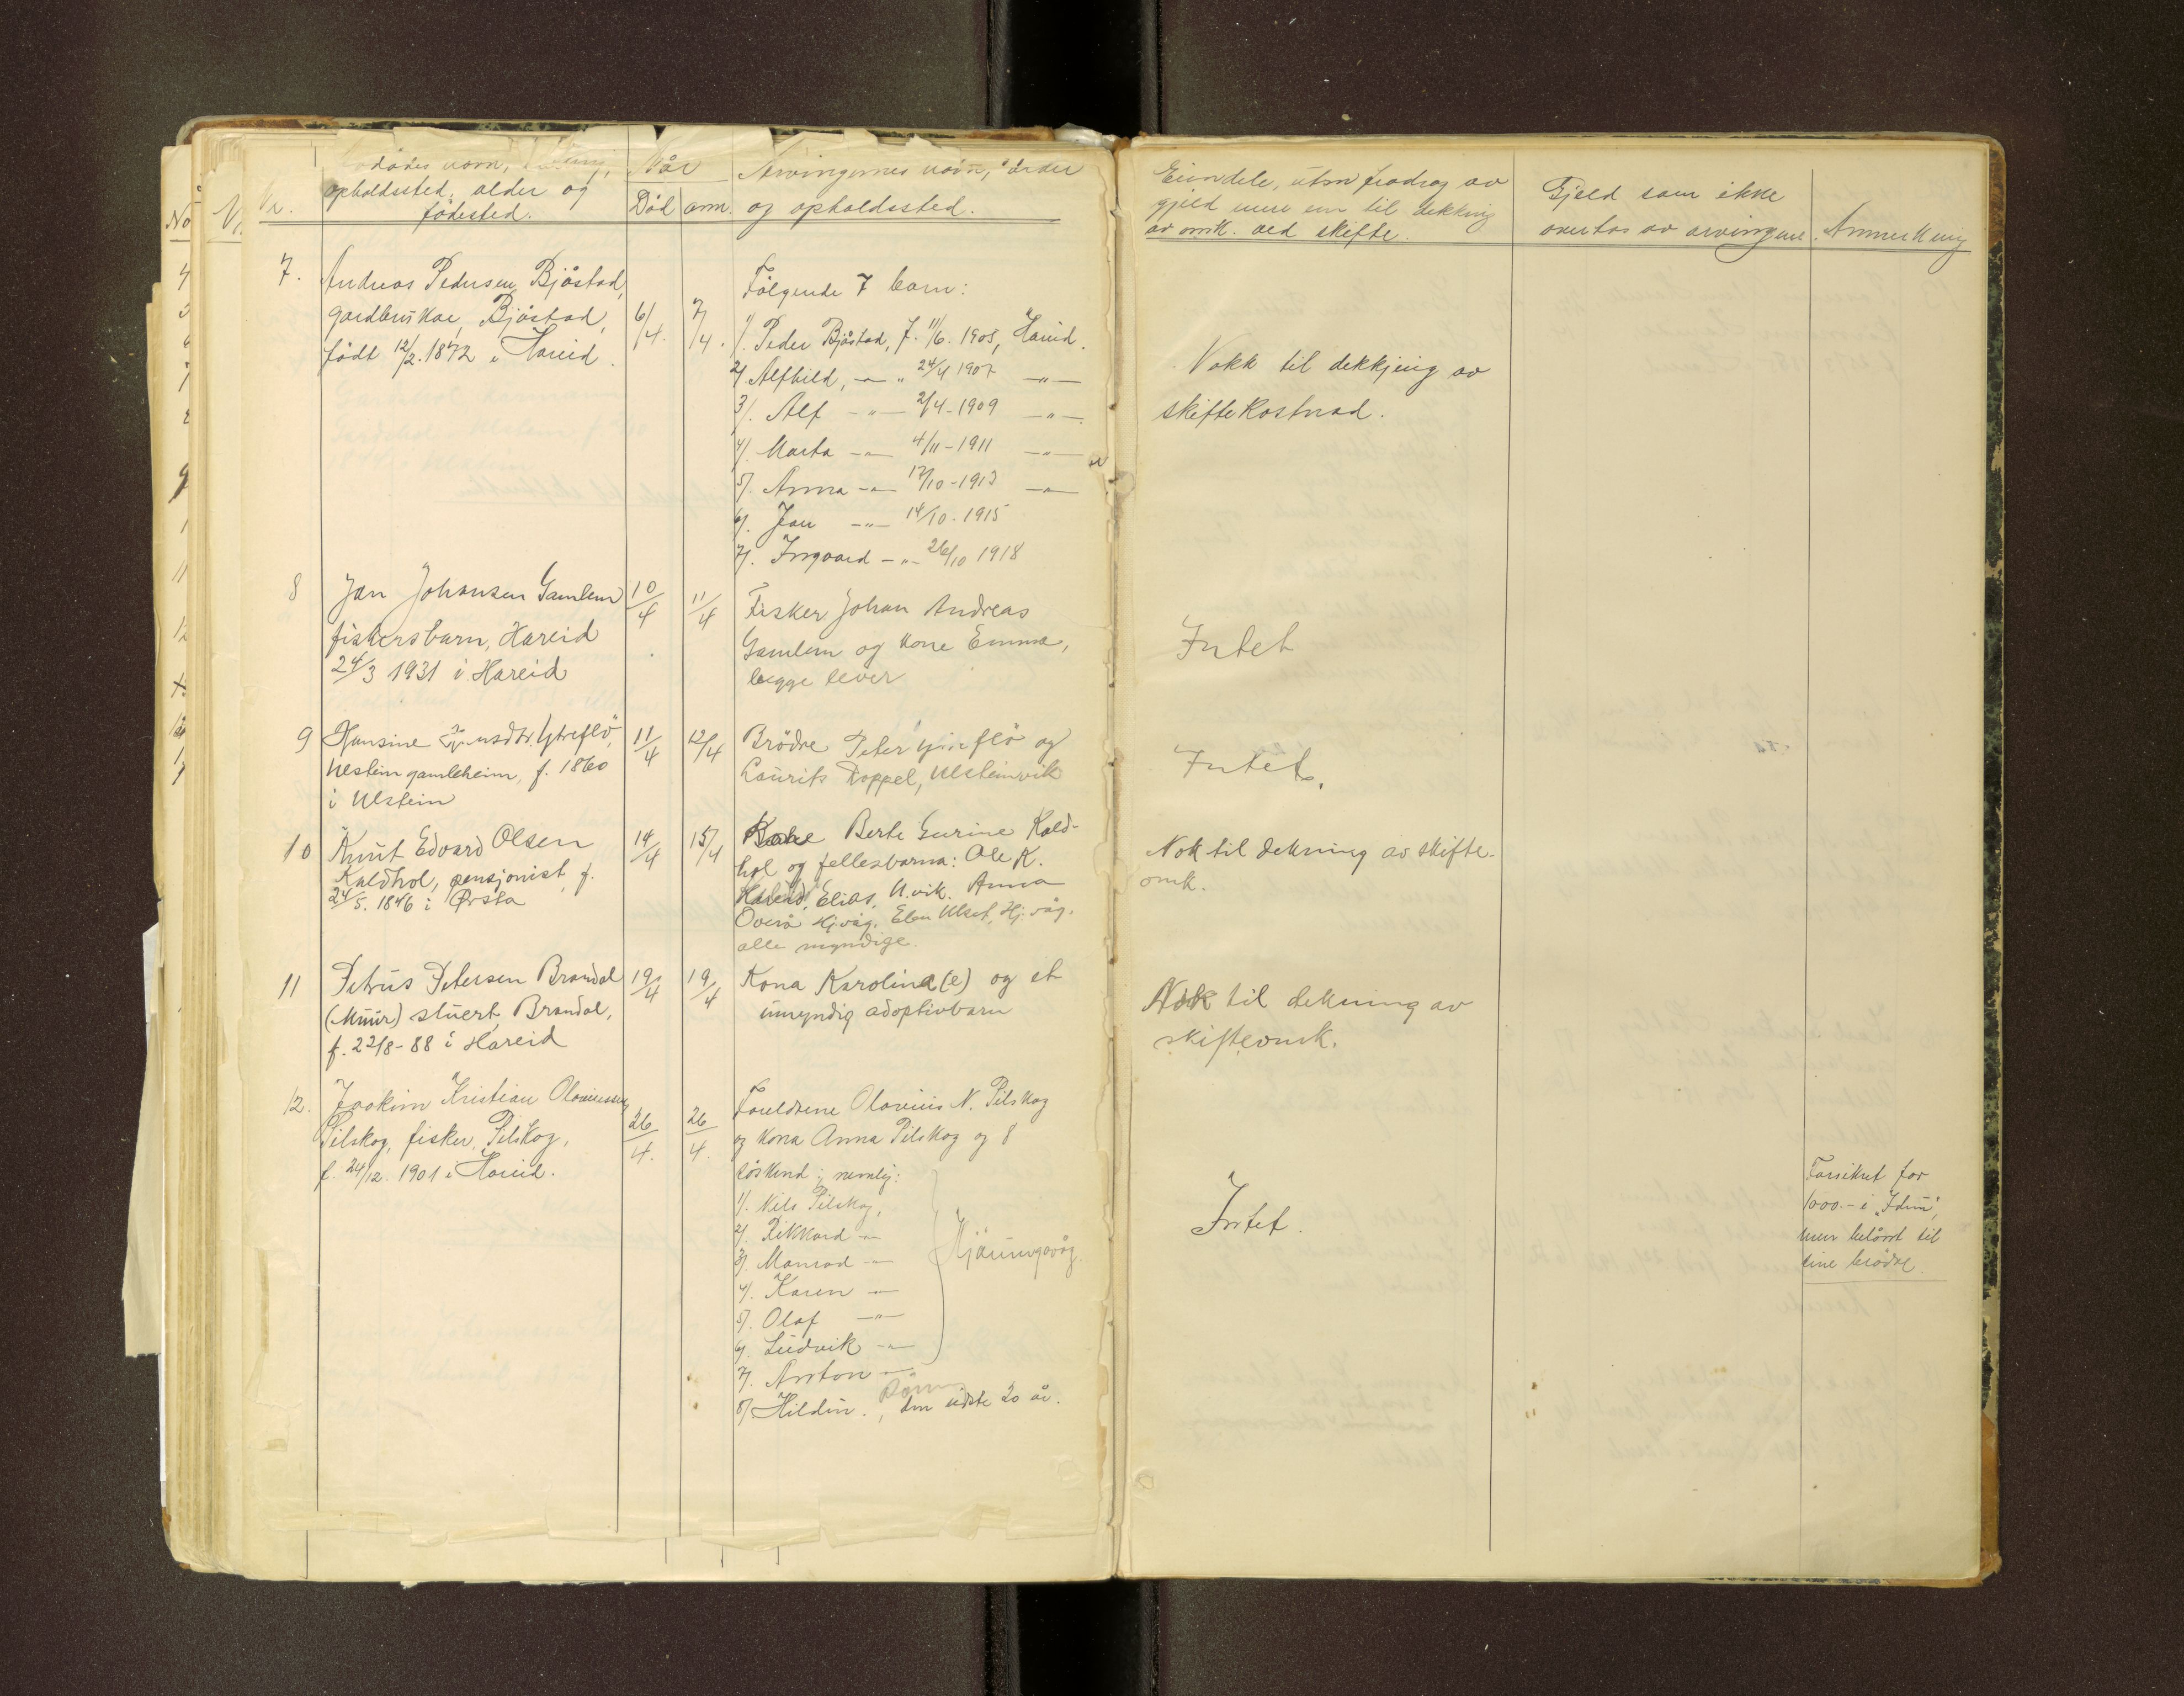 Nr.
dødes navn,
opholdssted, alder og
födested.
Når
Död
anm.
Arvingernes navn, alder
og opholdssted.
Eiendele, uten fradrag av
gjeld mere enn til dekking
av omk. ved skifte.
Gjeld som ikke
overtas av arvingene.
Anmerkning
7.
Andreas Pedersen Bjåstad,
gardbrukar, Bjåstad,
födt 12/2. 1872 i Hareid.
6/4.
7/4.
Følgende 7 barn:
1/. Peder Bjåstad, f. 11/6. 1905, Hareid.
2/. Alfhild, -"- 24/4 1907 -"-
3/. Alf -"- 2/4-1909 -"-
4/. Marta -"- 4/11-1911 -"-
5/. Anna -"- 17/10-1913 -"-
6/. Jan -"- 14/10-1915
7/. Ingvard -"- 26/10 1918
Nokk til dekkjing av
skiftekostnad.
8
Jan Johansen Gamlem
fiskersbarn, Hareid
24/3 1931 i Hareid
10/4
11/4
Fisker Johan Andreas
Gamlem og kone Emma,
begge lever
Intet
9
Hansine Ytreflö,
Ulstein gamleheim, f. 1860
i Ulstein
11/4
12/4
Brödre Peter Ytreflö og
Laurits Koppel, Ulsteinvik
Intet.
10
Knut Edvard Olsen
Kaldhol, pensjonist, f.
24/5. 1846 i Ørsta
14/4
15/4
Kone Berte Gurine Kald-
hol og fellesbarna: Ole K.
Hareid, Elias, U.vik. Anna
Overå Hj.våg, Elen Ulset, Hj.våg.
alle myndige.
Nok til dekning av skifte-
omk.
11
Petrus Petersen Brandal
(Muur) stuert, Brandal,
f. 22/8-88 i Hareid
19/4
19/4
Kona Karolina(e) og et
umyndig adoptivbarn
Nok til dekning av
skifteomk.
12.
Joakim Kristian Olaviussen
Pilskog, fisker, Pilskog,
f. 24/12. 1901 i Hareid.
26/4.
26/4.
Foreldrene Olavius N. Pilskog
og kona Anna Pilskog og 8
söskend, nemlig:
1/. Nils Pilskog,
2/. Rikkard -"-
3/. Monrad -"-
4/. Karen -"-
5/. Olaf -"-
6/. Ludvik -"-
Hjörungavåg.
7/. Anton -"-
8/ Hildur. , den sidste 20 år.
Intet.
Forsikret for
1000.- i "Idun",
men belånt til
sine brödre.